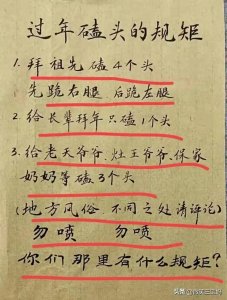 过年磕头的规矩
1. 拜祖先磕4个头
先跪右腿 后跪左腿
2. 给长辈拜年只磕1个头
3. 给老天爷爷、灶王爷爷、保家
奶奶等磕3个头
(地方风俗、不同之处请评论)
勿喷 勿喷
你们那里有什么规矩?